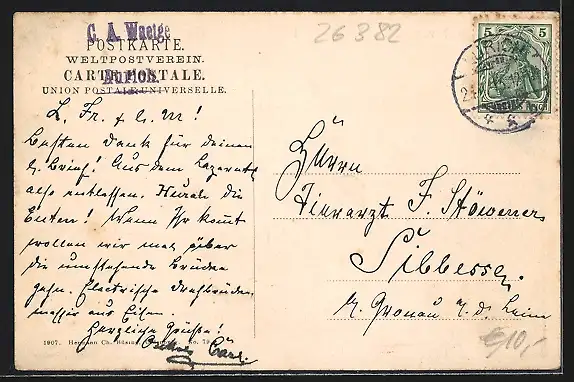 C. A. Waetge
POSTKARTE.
WELTPOSTVEREIN.
CARTE POSTALE.
Aurich.
UNION POSTALE UNIVERSELLE.
26382
5 5
AURICH
L. Fr. + l. M!
Besten Dank für deinen
l. Brief! Aus dem Lazarett
also entlassen. Hurah die
Enten! Wenn Ihr kommt
wollen wir mal über
die umstehende Brücke
gehn. Electrische Drehbrücke,
massiv aus Eisen.
Herzliche Grüße!
Carl.
Herrn
Tierarzt F. Stöwener
Sibbesse.
b. Gronau a. d. Leine
1907. Hermann Ch. No. 79
€10,-